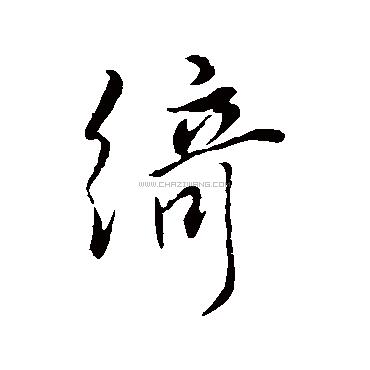 綺
WWW.CHAZIWANG.COM